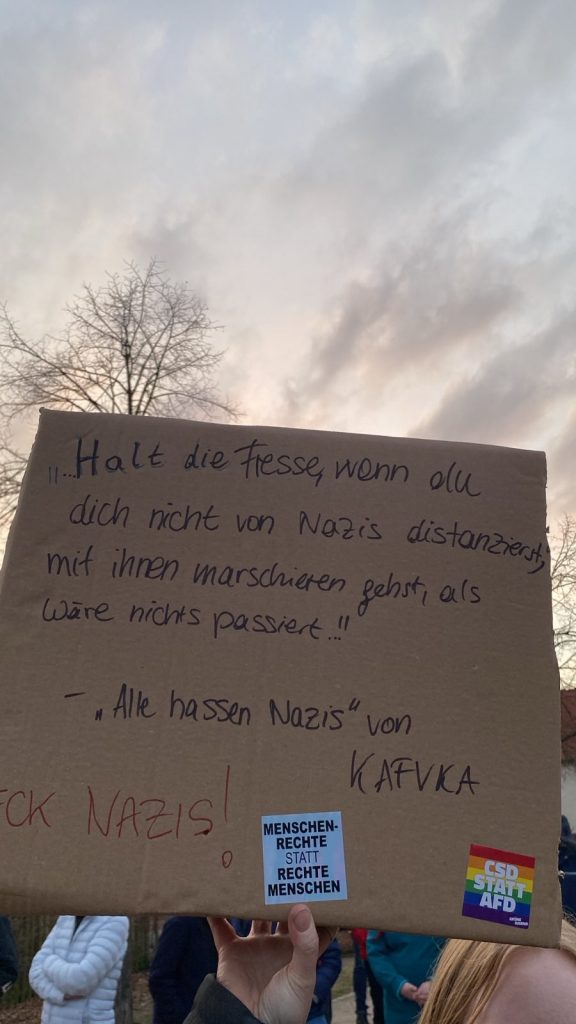 „...Halt die Fresse, wenn du
dich nicht von Nazis distanzierst,
mit ihnen marschieren gehst, als
wäre nichts passiert..."
– „Alle hassen Nazis" von
KAFVKA
FCK NAZIS!
MENSCHEN-
RECHTE
STATT
RECHTE
MENSCHEN
CSD
STATT
AFD